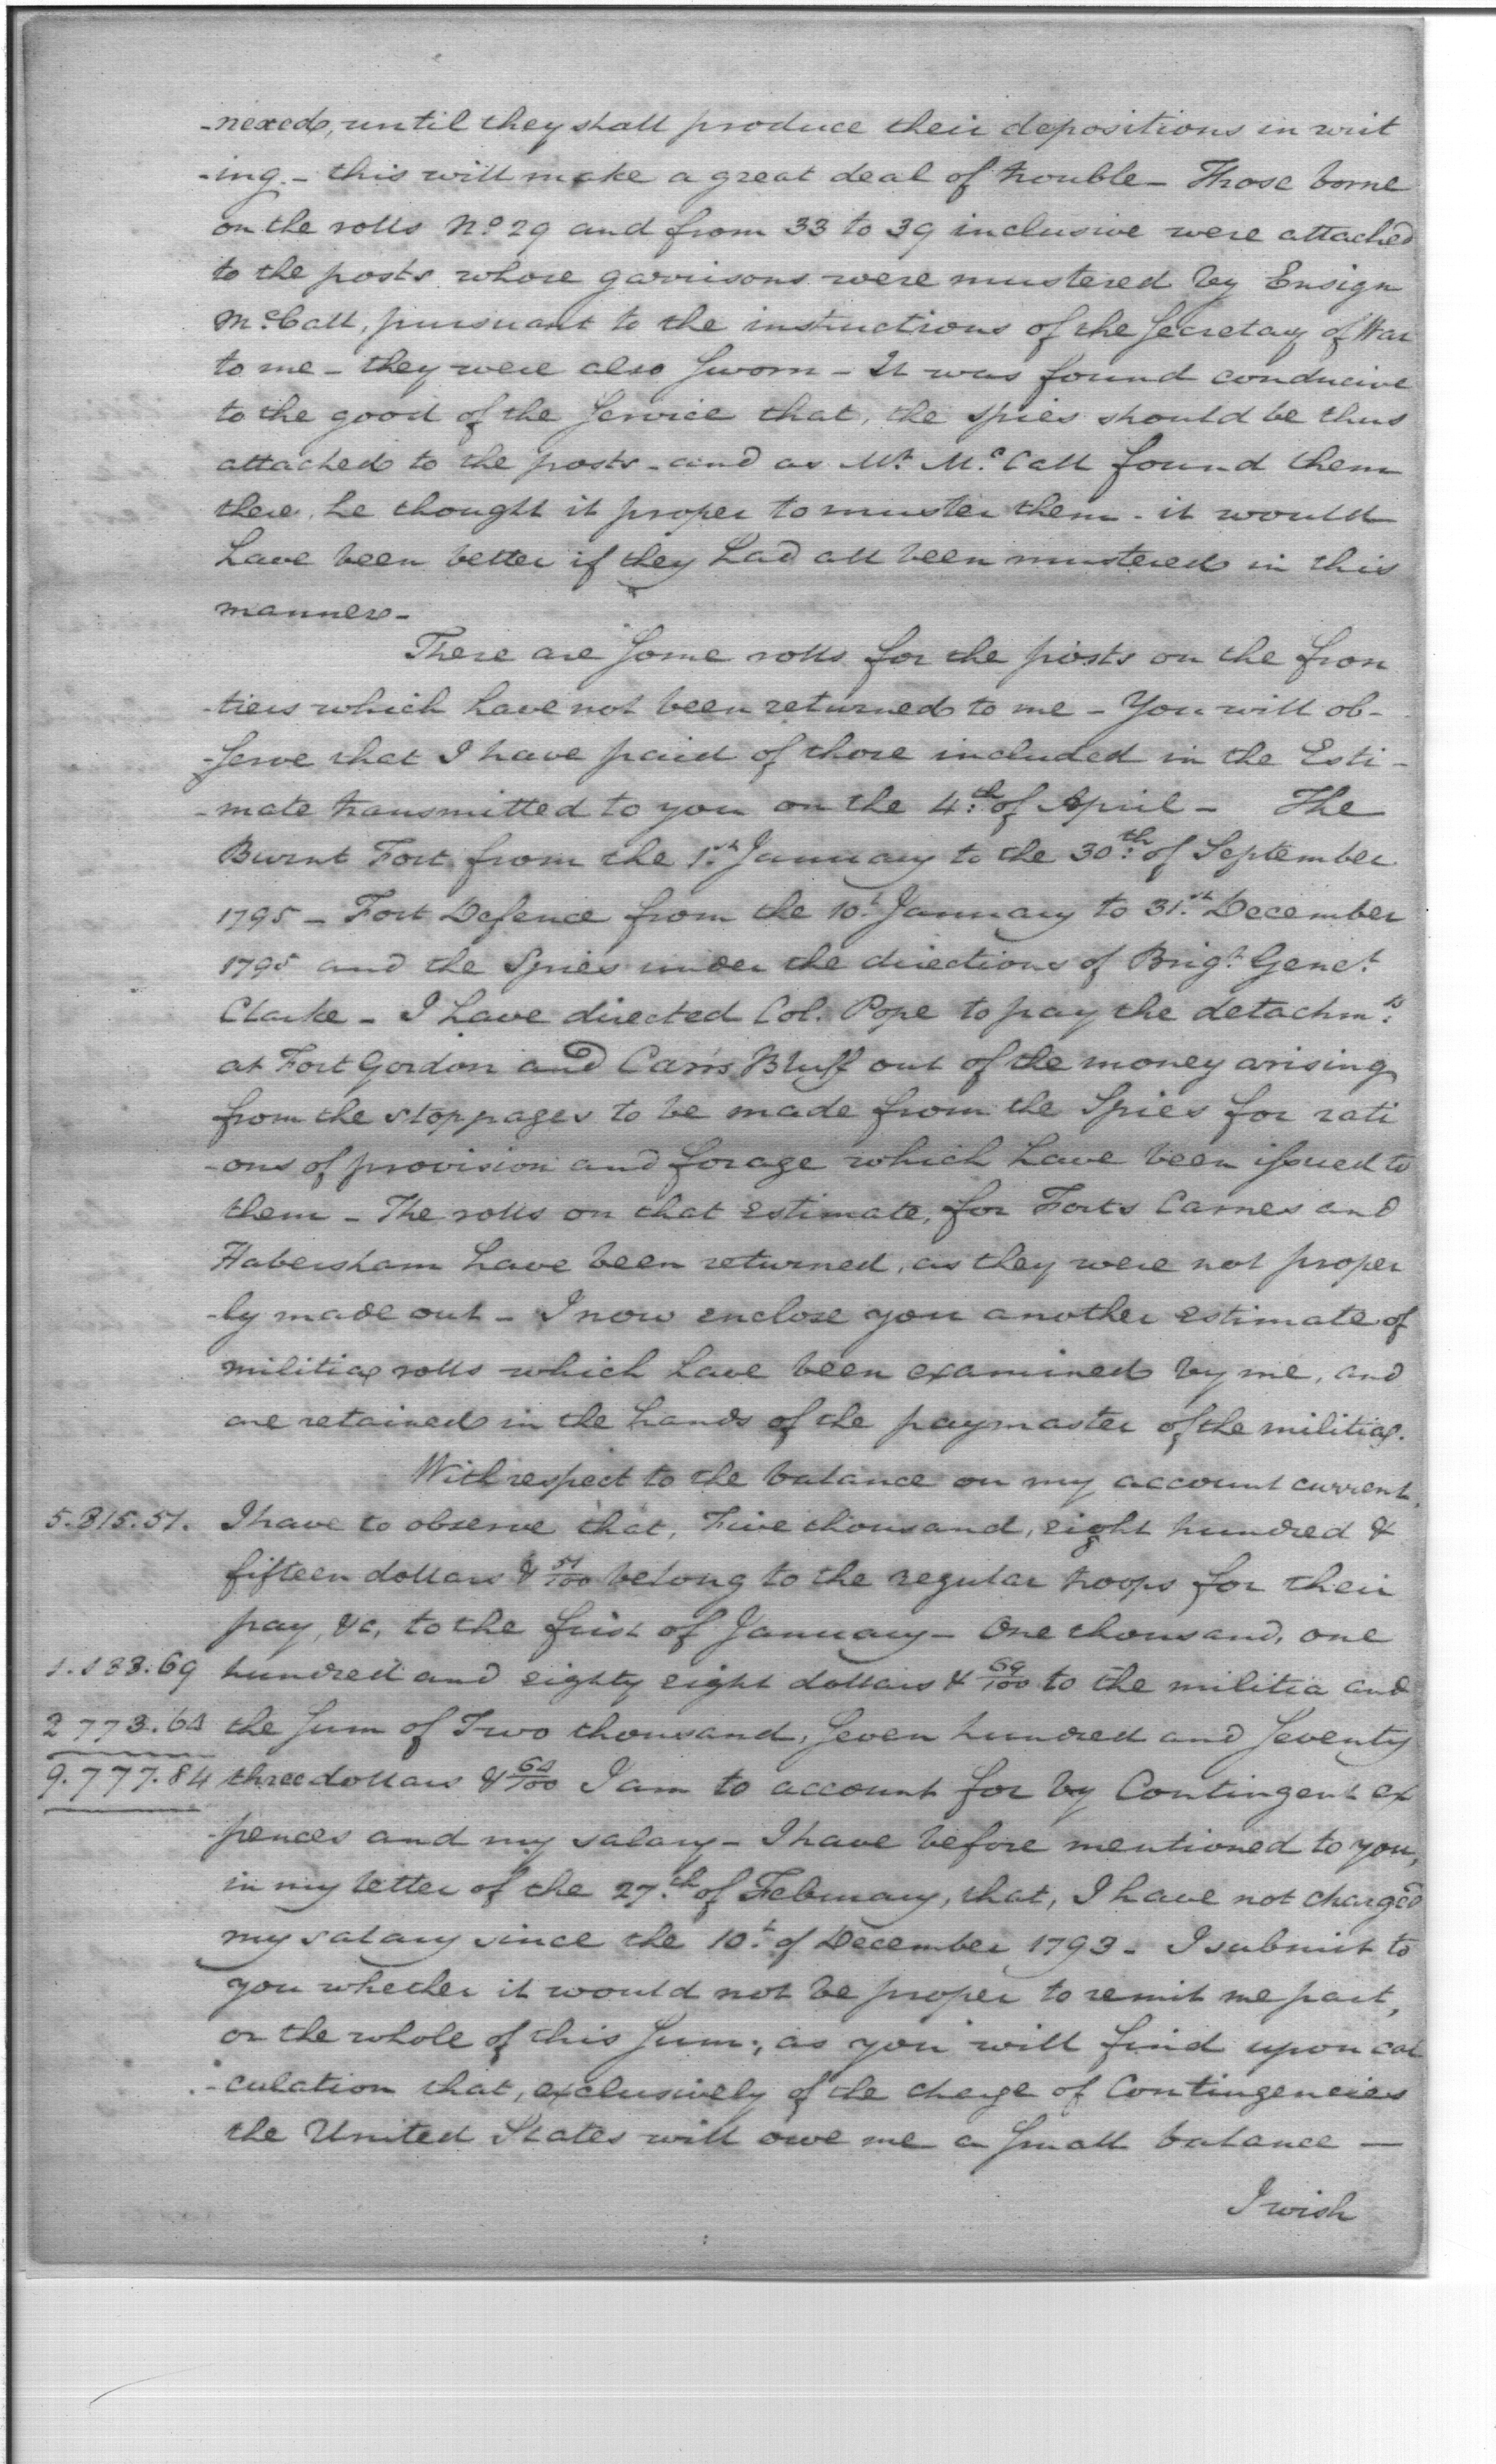 -nexed, until they shall produce their depositions in writ
-ing. - this will make a great deal of trouble - Those borne
on the rolls No. 29 and from 33 to 39 inclusive were attached
to the posts whose garrisons were mustered by Ensign
McCall, pursuant to the instructions of the Secretary of War
to me - they were also sworn - It was found conducive
to the good of the Service that, the spies should be thus
attached to the posts - and as Mr. McCall found them
there, he thought it proper to muster them - it would
have been better if they had all been mustered in this
manner -
There are some rolls for the posts on the fron
-tiers which have not been returned to me - You will ob-
-serve that I have paid of those included in the Esti-
-mate transmitted to you on the 4th. of April - The
Burnt Fort from the 1st. January to the 30th. of September
1795 - Fort Defence from the 10th. January to 31st. December
1795 and the Spies under the directions of Brigr. Genel.
Clarke - I have directed Col. Pope to pay the detachmts.
at Fort Gordon and Carrs Bluff out of the money arising
from the stoppages to be made from the Spies for rati
-ons of provision and forage which have been issued to
them - The rolls on that estimate, for Forts Carnes and
Habersham have been returned, as they were not proper
-ly made out - I now enclose you another estimate of
militia rolls which have been examined by me, and
are retained in the hands of the paymaster of the militia.
With respect to the balance on my account current,
5.815.51. I have to observe that, Five thousand, eight hundred &
fifteen dollars & 51/100 belong to the regular troops for their
pay, &c, to the first of January - One thousand, one
1.188.69 hundred and eighty eight dollars & 69/100 to the militia and
2 773.64 the sum of Two thousand, seven hundred and seventy
9.777.84 three dollars & 64/100 I am to account for by Contingent ex
-pences and my salary - I have before mentioned to you,
in my letter of the 27th. of February, that, I have not charged
my salary since the 10th. of December 1793 - I submit to
you whether it would not be proper to remit me part,
or the whole of this sum; as you will find upon cal
-culation that, exclusively of the charge of Contingencies
the United States will owe me a small balance -
I wish